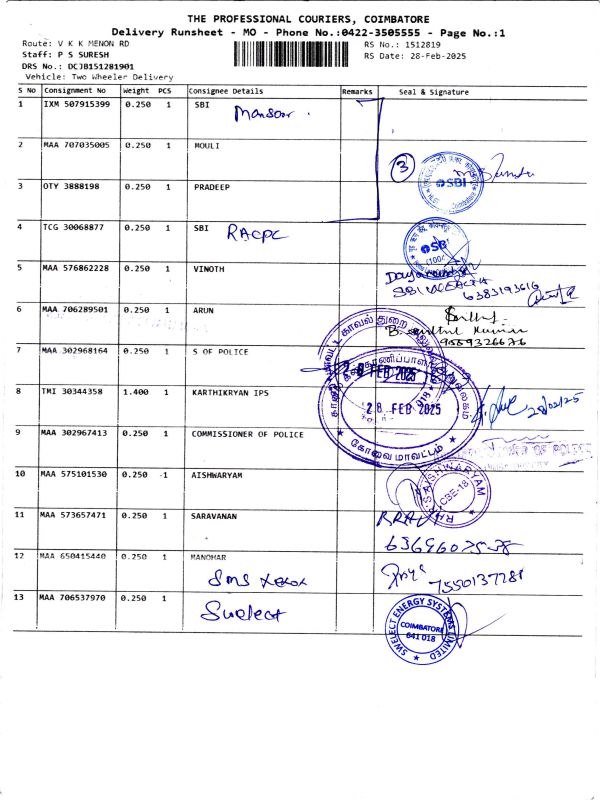 THE PROFESSIONAL COURIERS, COIMBATORE
Delivery Runsheet - MO - Phone No.:0422-3505555 - Page No.:1
Route: V K K MENON RD
RS No.: 1512819
Staff: P S SURESH
RS Date: 28-Feb-2025
DRS No.: DCJB151281901
Vehicle: Two Wheeler Delivery
S No Consignment No Weight PCS Consignee Details Remarks Seal & Signature
1 IXM 507915399 0.250 1 SBI
Mansoor
2 MAA 707035005 0.250 1 MOULI
3
SBI
3 OTY 3888198 0.250 1 PRADEEP
4 TCG 30068877 0.250 1 SBI RACPC
SBI
5 MAA 576862228 0.250 1 VINOTH
SBI
6383193616
6 MAA 706289501 0.250 1 ARUN
9559326676
7 MAA 302968164 0.250 1 S OF POLICE
28 FEB 2025
8 TMI 30344358 1.400 1 KARTHIKRYAN IPS
28 FEB 2025
28/02/25
கோவை மாவட்டம்
9 MAA 302967413 0.250 1 COMMISSIONER OF POLICE
10 MAA 575101530 0.250 -1 AISHWARYAM
CBE-18
11 MAA 573657471 0.250 1 SARAVANAN
12 MAA 650415440 0.250 1 MANOHAR
SMS
7550137281
13 MAA 706537970 0.250 1 Swelect
SWELECT ENERGY SYSTEMS LIMITED
COIMBATORE
641 018